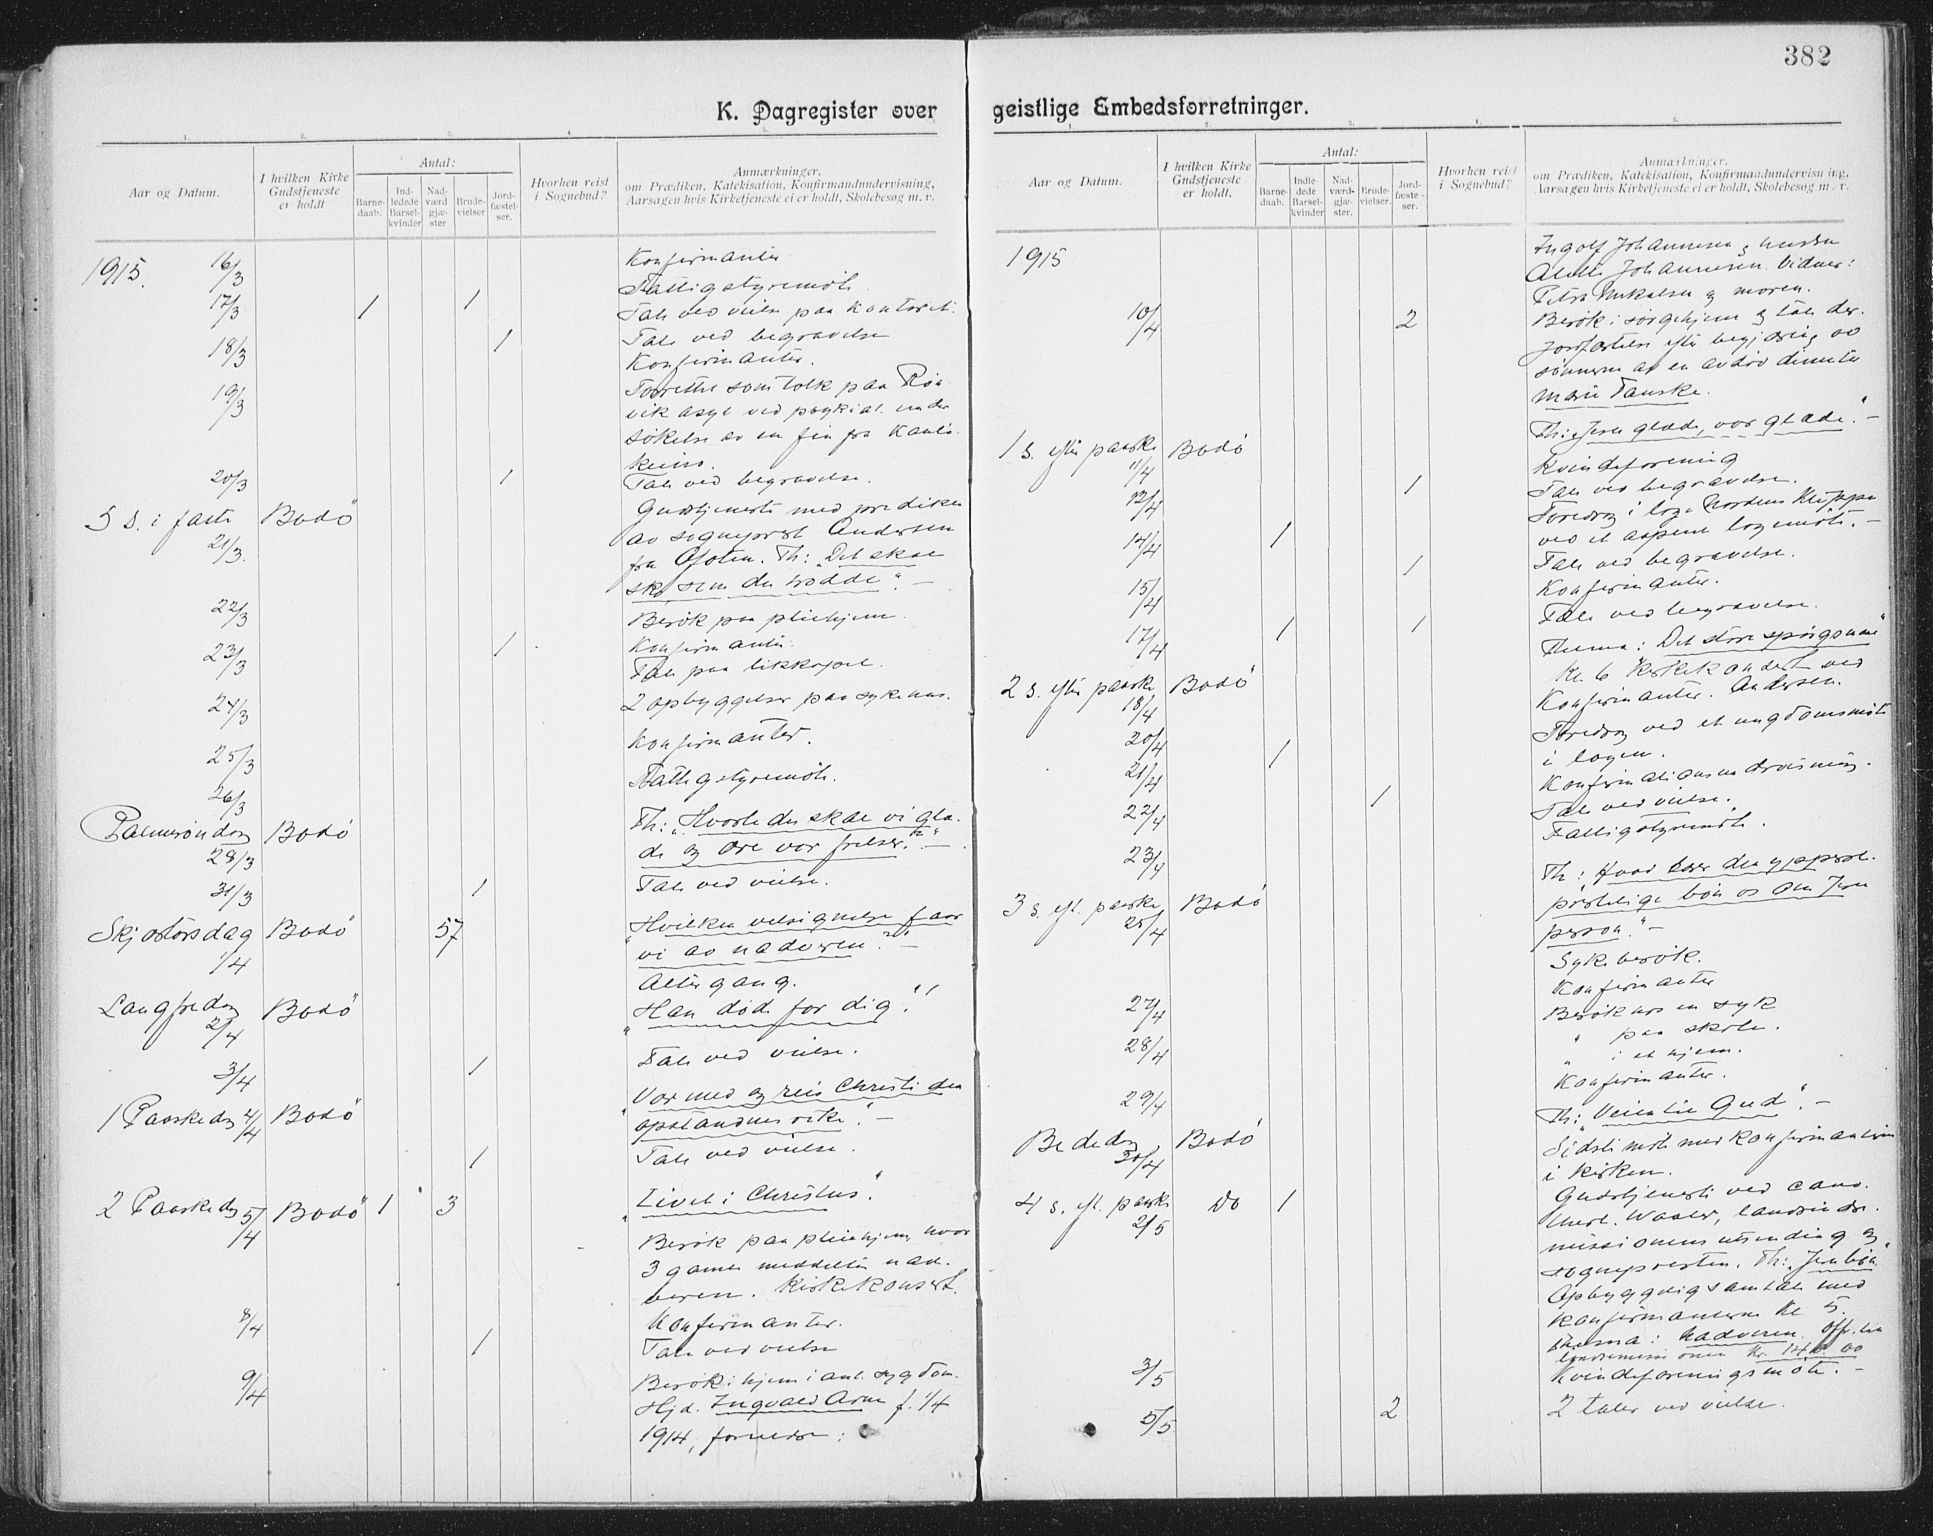 382
K. Dagregister over
Aar og Datum.
I hvilken Kirke Gudstjeneste er holdt
Antal:
Barne-daab.
Ind-ledede Barsel-kvinder
Nad-værd gjæ-ster
Brude-vielser
Jord-fæstel-ser.
Hvorhen reist i Sognebud?
Anmærkninger,
om Prædiken, Katekisation, Konfirmandundervisning,
Aarsagen hvis Kirketjeneste ei er holdt, Skolebesøg m. v.
1915. 16/3 Konfirmanter
Fattigstyremöte.
17/3 1 1 Tale ved vielse paa kontoret.
1 Tale ved begravelse
18/3 Konfirmanter.
19/3 Forrettet som tolk paa Rön
vik asyl ved psykiat. under
sökelse av en fin fra Kauto
keino.
20/3 1 Tale ved begravelse.
5 s. i faste Bodö Gudstjeneste med prediken
21/3. av sogneprest Andersen
fra Ofoten. Th: "Det skal
ske som du trodde". –
22/3 Besök paa pleiehjem.
23/3 1 Konfirmanter.
Tale paa likkapel.
24/3 2 opbyggelser paa sykehus.
25/3 Konfirmanter.
26/3 Fattigstyremöte.
Palmesöndag Bodö Th: "Hvorledes skal vi glæ-
28/3 de og ære vor frelser?" –
31/3 1 Tale ved vielse.
Skjærtorsdag Bodö 57 Hvilken velsignelse faar
1/4 vi av nadveren?" –
Altergang.
Langfredag Bodö "Han döde for dig".
2/4
3/4 1 Tale ved vielse.
1 Paaskedag 4/4 Bodö "Vær med og reis Christi den
opstandnes rike". –
1 Tale ved vielse.
2 Paaskedag 5/4 Bodö 1 3 "Livet i Christus".
Besök paa pleiehjem, hvor
3 gamle meddeltes nad-
veren. Kirkekonsert.
8/4 Konfirmanter.
1 Tale ved vielse
9/4 Besök i hjem i anl. sygdom.
Hjd. Ingvald Arne f. 1/4
1914, foreldre:
geistlige Embedsforretninger.
Aar og Datum.
I hvilken Kirke Gudstjeneste er holdt,
Antal:
Barne-daab.
Indle-dede Barsel-kvinder
Nad-værd-gjæ-ster.
Brude-vielser.
Jord-fæste-ser.
Hvorhen reist i Sognebud?
Anmærkninger,
om Prædiken, Katekisation, Konfirmandundervisning,
Aarsagen hvis Kirketjeneste ei er holdt, Skolebesøg m. v.
1915 Ingolf Johannesen & hustru
Johannesen. Vidner:
Petra Mikalsen og moren.
10/4 2 Besök i sørgehjem og tale der.
Jordfæstelse efter begjæring av
sönnerne av en avdöd dissenter
Marie Fauske.
1 s. efter paaske Bodö Th: "Jesu glæde, vor glæde". –
11/4 Kvindeforening
12/4 1 Tale ved begravelse.
Foredrag i loge Nordens Klippe
ved et aapent logemöte. –
14/4 1 1 Tale ved begravelse.
Konfirmanter.
15/4 Tale ved begravelse.
17/4 1 1
2 s. efter paaske Bodö Thema: "Det store spörgsmaal"
18/4 Kl. 6 kirkekonsert ved
Konfirmanter. Andersen.
20/4 1 Foredrag ved et ungdomsmöte
i logen.
21/4 Konfirmationsundervisning.
22/4 1 Tale ved vielse.
23/4 Fattigstyremöte.
3 s. eft. paaske Bodö Th: Hvad lærer den ypperste-
25/4 prestelige bön os om Jesu
person". –
Sykebesök.
Konfirmanter
27/4 Besök hos en syk
" paa skole.
28/4 " i et hjem.
29/4 Konfirmanter.
Bededag 30/4 Bodö Th: "Veien til Gud". –
Sidste möte med konfirmanterne
i kirken.
4 s. eft. paaske 2/5 do 1 Gudstjeneste ved cand.
theol. Waaler, landsindre-
missionens utsending og
sognepresten. Th: "Jesu bön"
Opbyggelig samtale med
konfirmanterne kl 5.
Thema: Nadveren. Off. til
3/5 Kvindeforeningsmöte. –
5/5 2 2 taler ved vielse.